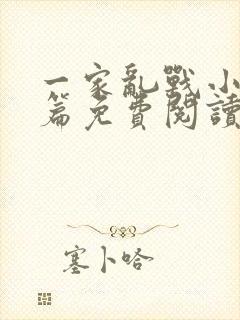 一家亂戰小
篇免費閱讀
塞卜哈